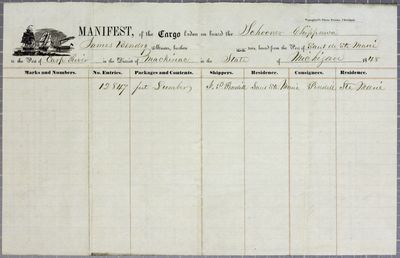 MANIFEST, of the Cargo laden on board the Schooner Chippewa
James Master, burthen tons, bound from the Port of Saut de Ste Marie
to the Port of Carp River in the District of Mackinac in the State of Michigan 18
Marks and Numbers. No. Entries. Packages and Contents. Shippers. Residence. Consignees. Residence.
12847 feet Lumber Saut Ste Marie Ste Marie